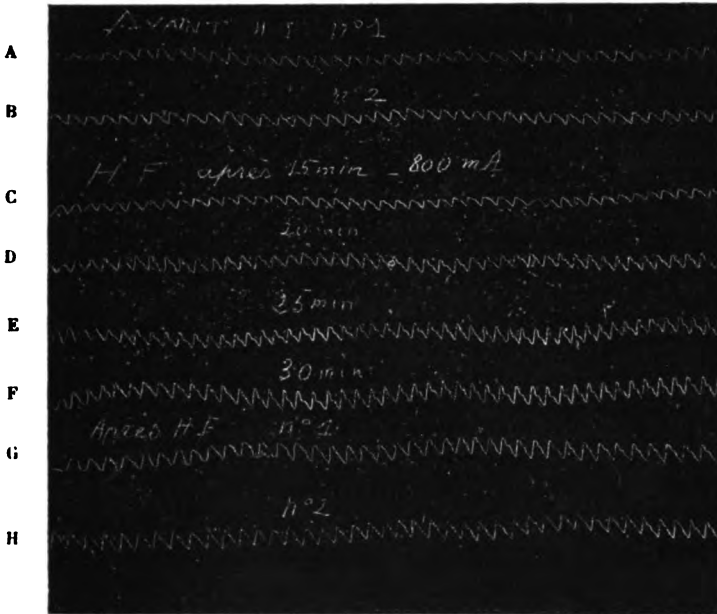 A
AVANT H F n°1
B
n°2
H F après 15 min - 800 mA
C
20 min
D
25 min
E
30 min
F
Après H F n°1
G
n°2
H